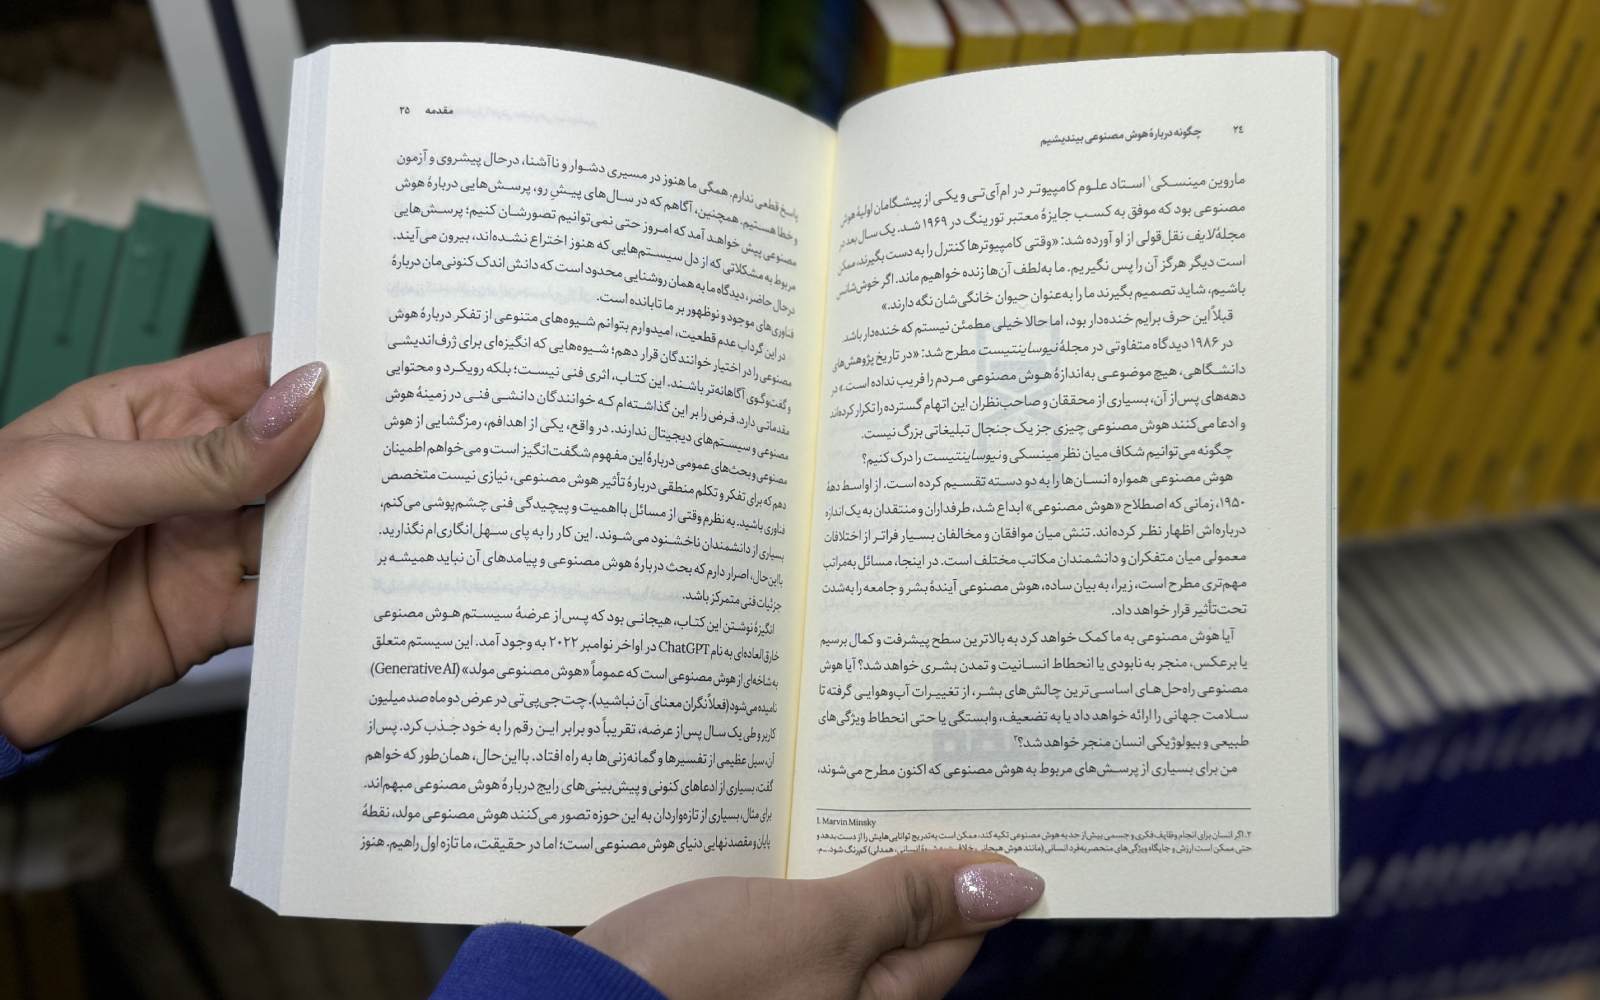 ۲۴ چگونه دربارهٔ هوش مصنوعی بیندیشیم
ماروین مینسکی۱ استاد علوم کامپیوتر در ام‌آی‌تی و یکی از پیشگامان اولیهٔ هوش
مصنوعی بود که موفق به کسب جایزهٔ معتبر تورینگ در ۱۹۶۹ شد. یک سال بعد در
مجلهٔ لایف نقل‌قولی از او آورده شد: «وقتی کامپیوترها کنترل را به دست بگیرند، ممکن
است دیگر هرگز آن را پس نگیریم. ما به‌لطف آن‌ها زنده خواهیم ماند. اگر خوش‌شانس
باشیم، شاید تصمیم بگیرند ما را به‌عنوان حیوان خانگی‌شان نگه دارند.»
قبلاً این حرف برایم خنده‌دار بود، اما حالا خیلی مطمئن نیستم که خنده‌دار باشد.
در ۱۹۸۶ دیدگاه متفاوتی در مجلهٔ نیوساینتیست مطرح شد: «در تاریخ پژوهش‌های
دانشگاهی، هیچ موضوعی به‌اندازهٔ هوش مصنوعی مردم را فریب نداده است.» در
دهه‌های پس‌از آن، بسیاری از محققان و صاحب‌نظران این اتهام گسترده را تکرار کرده‌اند
و ادعا می‌کنند هوش مصنوعی چیزی جز یک جنجال تبلیغاتی بزرگ نیست.
چگونه می‌توانیم شکاف میان نظر مینسکی و نیوساینتیست را درک کنیم؟
هوش مصنوعی همواره انسان‌ها را به دو دسته تقسیم کرده است. از اواسط دههٔ
۱۹۵۰، زمانی که اصطلاح «هوش مصنوعی» ابداع شد، طرفداران و منتقدان به یک اندازه
درباره‌اش اظهار نظر کرده‌اند. تنش میان موافقان و مخالفان بسیار فراتر از اختلافات
معمولی میان متفکران و دانشمندان مکاتب مختلف است. در اینجا، مسائل به‌مراتب
مهم‌تری مطرح است، زیرا، به بیان ساده، هوش مصنوعی آیندهٔ بشر و جامعه را به‌شدت
تحت‌تأثیر قرار خواهد داد.
آیا هوش مصنوعی به ما کمک خواهد کرد به بالاترین سطح پیشرفت و کمال برسیم
یا برعکس، منجر به نابودی یا انحطاط انسانیت و تمدن بشری خواهد شد؟ آیا هوش
مصنوعی راه‌حل‌های اساسی‌ترین چالش‌های بشر، از تغییرات آب‌وهوایی گرفته تا
سلامت جهانی را ارائه خواهد داد یا به تضعیف، وابستگی یا حتی انحطاط ویژگی‌های
طبیعی و بیولوژیکی انسان منجر خواهد شد؟۲
من برای بسیاری از پرسش‌های مربوط به هوش مصنوعی که اکنون مطرح می‌شوند،
1. Marvin Minsky
۲. اگر انسان برای انجام وظایف فکری و جسمی بیش‌از حد به هوش مصنوعی تکیه کند، ممکن است به‌تدریج توانایی‌هایش را از دست بدهد و
حتی ممکن است ارزش و جایگاه ویژگی‌های منحصربه‌فرد انسانی (مانند هوش هیجانی، همدلی) کم‌رنگ شود. ـ م.
مقدمه ۲۵
پاسخ قطعی ندارم. همگی ما هنوز در مسیری دشوار و ناآشنا، درحال پیشروی و آزمون
و خطا هستیم. همچنین، آگاهم که در سال‌های پیشِ رو، پرسش‌هایی دربارهٔ هوش
مصنوعی پیش خواهد آمد که امروز حتی نمی‌توانیم تصورشان کنیم؛ پرسش‌هایی
مربوط به مشکلاتی که از دل سیستم‌هایی که هنوز اختراع نشده‌اند، بیرون می‌آیند.
درحال حاضر، دیدگاه ما به همان روشنایی محدود است که دانش اندک کنونی‌مان دربارهٔ
فناوری‌های موجود و نوظهور بر ما تابانده است.
در این گرداب عدم قطعیت، امیدوارم بتوانم شیوه‌های متنوعی از تفکر دربارهٔ هوش
مصنوعی را در اختیار خوانندگان قرار دهم؛ شیوه‌هایی که انگیزه‌ای برای ژرف‌اندیشی
و گفت‌وگوی آگاهانه‌تر باشند. این کتاب، اثری فنی نیست؛ بلکه رویکرد و محتوایی
مقدماتی دارد. فرض را بر این گذاشته‌ام که خوانندگان دانشی فنی در زمینهٔ هوش
مصنوعی و سیستم‌های دیجیتال ندارند. در واقع، یکی از اهدافم، رمزگشایی از هوش
مصنوعی و بحث‌های عمومی دربارهٔ این مفهوم شگفت‌انگیز است و می‌خواهم اطمینان
دهم که برای تفکر و تکلم منطقی دربارهٔ تأثیر هوش مصنوعی، نیازی نیست متخصص
فناوری باشید. به نظرم وقتی از مسائل بااهمیت و پیچیدگی فنی چشم‌پوشی می‌کنم،
بسیاری از دانشمندان ناخشنود می‌شوند. این کار را به پای سهل‌انگاری‌ام نگذارید.
بااین‌حال، اصرار دارم که بحث دربارهٔ هوش مصنوعی و پیامدهای آن نباید همیشه بر
جزئیات فنی متمرکز باشد.
انگیزهٔ نوشتن این کتاب، هیجانی بود که پس‌از عرضهٔ سیستم هوش مصنوعی
خارق‌العاده‌ای به نام ChatGPT در اواخر نوامبر ۲۰۲۲ به وجود آمد. این سیستم متعلق
به شاخه‌ای از هوش مصنوعی است که عموماً «هوش مصنوعی مولد» (Generative AI)
نامیده می‌شود (فعلاً نگران معنای آن نباشید). چت‌جی‌پی‌تی در عرض دو ماه صد میلیون
کاربر و طی یک سال پس‌از عرضه، تقریباً دو برابر این رقم را به خود جذب کرد. پس‌از
آن، سیل عظیمی از تفسیرها و گمانه‌زنی‌ها به راه افتاد. بااین‌حال، همان‌طور که خواهم
گفت، بسیاری از ادعاهای کنونی و پیش‌بینی‌های رایج دربارهٔ هوش مصنوعی مبهم‌اند.
برای مثال، بسیاری از تازه‌واردان به این حوزه تصور می‌کنند هوش مصنوعی مولد، نقطهٔ
پایان و مقصد نهایی دنیای هوش مصنوعی است؛ اما در حقیقت، ما تازه اول راهیم. هنوز